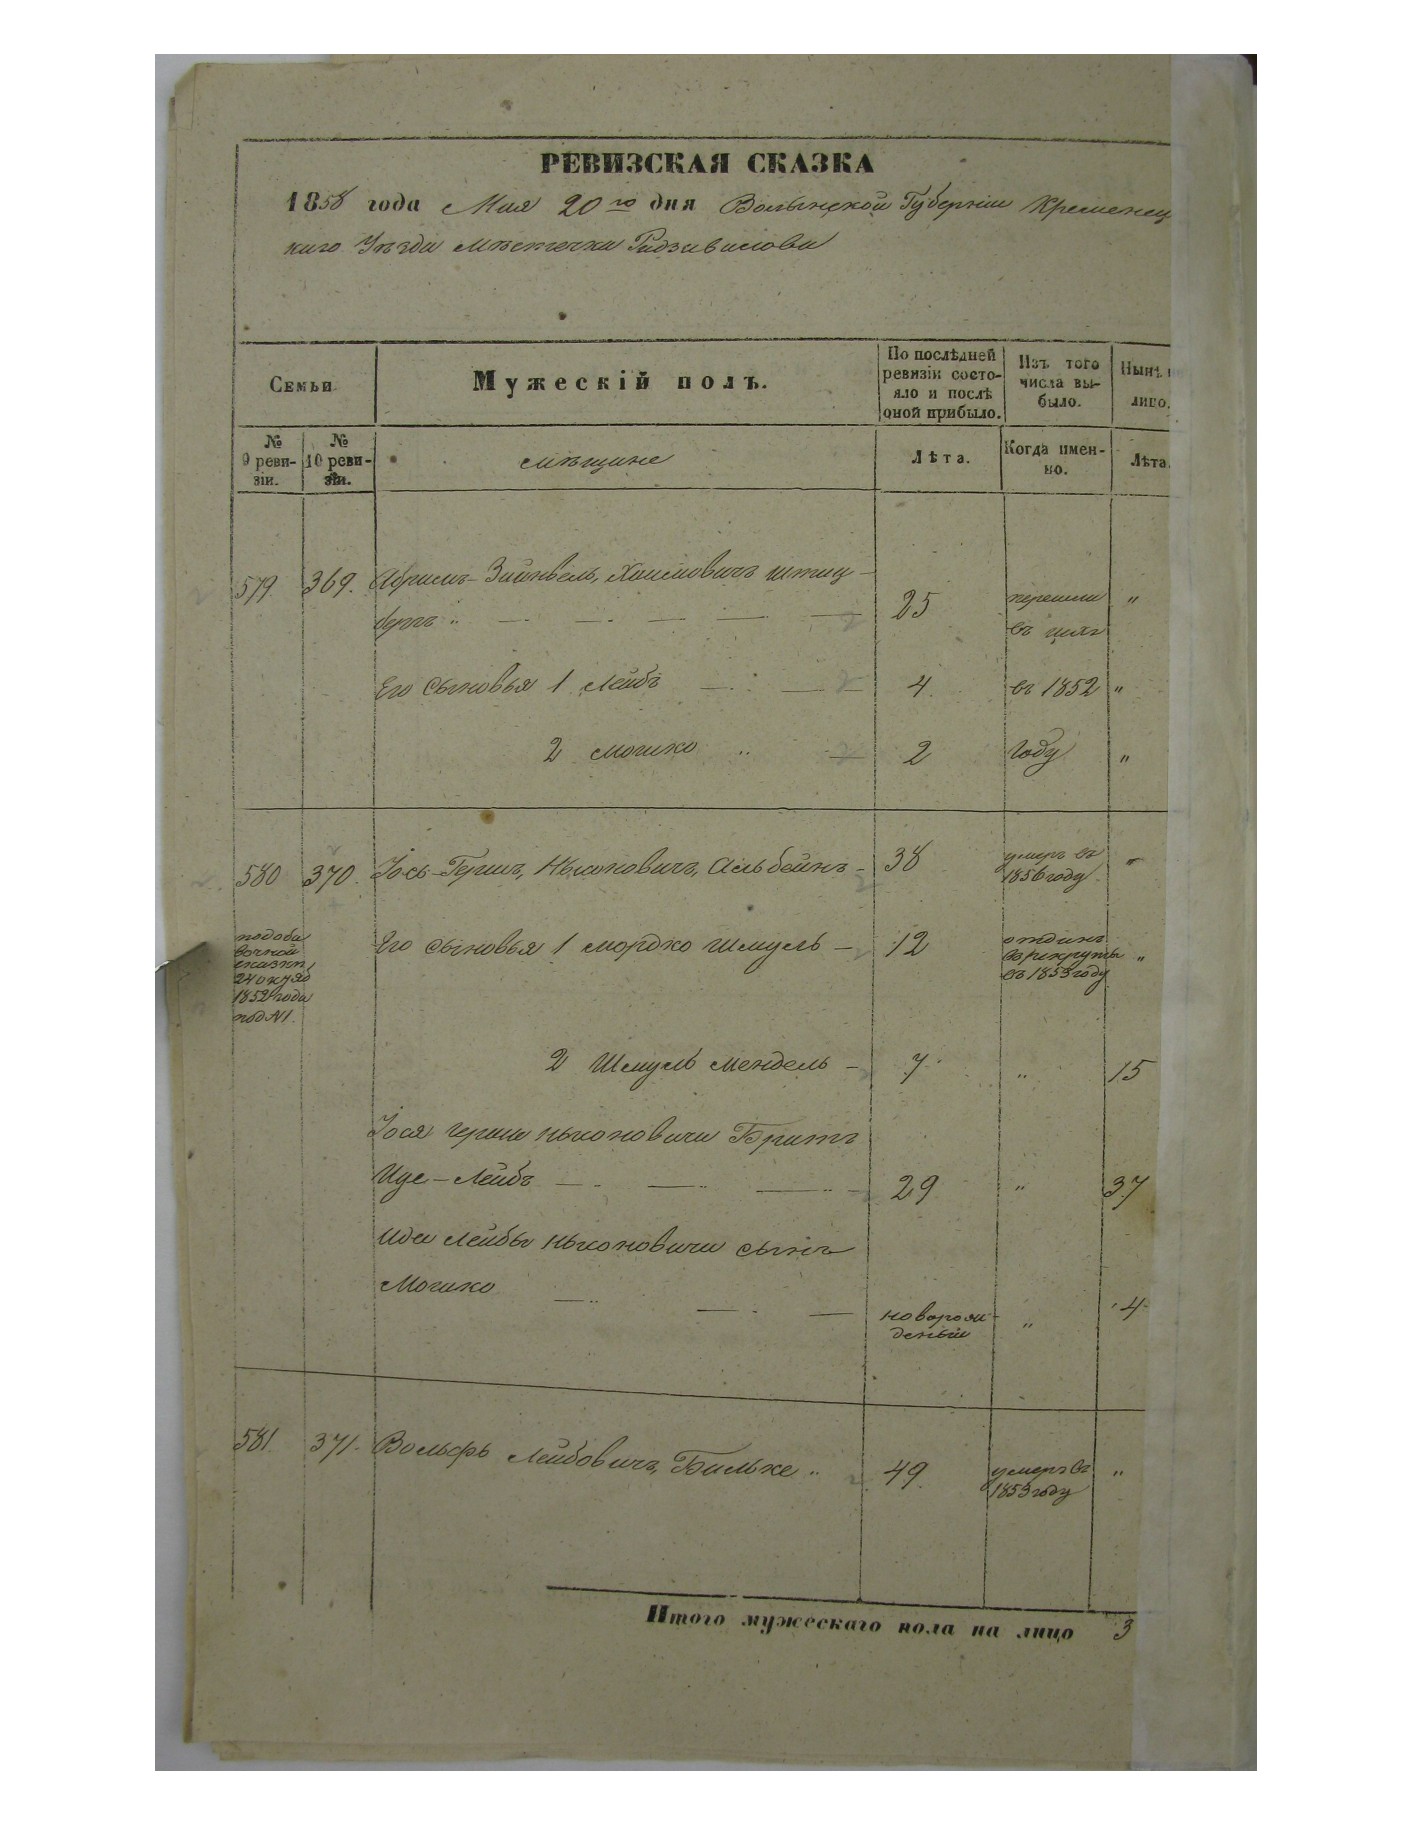 РЕВИЗСКАЯ СКАЗКА
1858 года Мая 20го дня Волынской Губерніи Кременец
каго Уѣзда мѣстечка Радзивилова
Семьи
Мужескій полъ.
По послѣдней ревизіи состо-
яло и послѣ оной прибыло.
Изъ того числа вы-
было.
Нынѣ
лицо.
№ 9 реви-
зіи.
№ 10 реви-
зіи.
мѣщане
Лѣта.
Когда имен-
но.
Лѣта.
579. 369. Абрамъ-Зайнвель, Хаимовичъ Штиц-
бергъ " 25 перешли "
въ цехъ
Его сыновья 1 Лейбъ 4. въ 1852 "
2 Мошко " 2 году "
580 370. Іось-Гершъ, Нысоновичъ, Альбейнъ - 38 умеръ въ "
1856 году
по доба
вочной
сказки
24 окуяб
1852 года
под №1.
Его сыновья 1 Мордко Шмуль - 12 отданъ
въ рекруты "
въ 1853 году
2 Шмуль Мендель - 7 " 15
Іося Герша Нысоновича Братъ
Иде-Лейбъ 29 " 37
Иды Лейбы Нысоновича сынъ
Мошко
новорож-
деный " 4
581. 371. Вольфъ Лейбовичъ, Бильке " 49. умеръ въ "
1853 году
Итого мужескаго пола на лицо 3